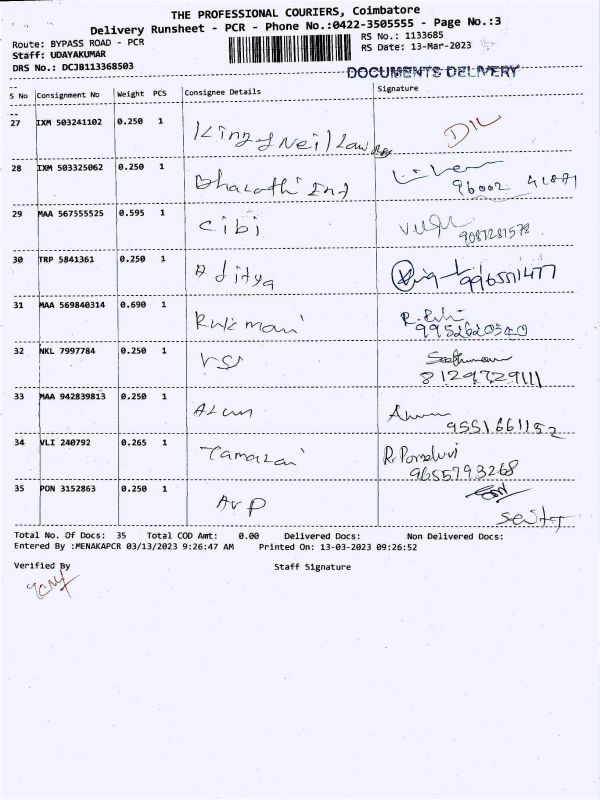 THE PROFESSIONAL COURIERS, Coimbatore
Delivery Runsheet - PCR - Phone No.:0422-3505555 - Page No.:3
Route: BYPASS ROAD - PCR
Staff: UDAYAKUMAR
DRS No.: DCJB113368503
RS No.: 1133685
RS Date: 13-Mar-2023
DOCUMENTS DELIVERY
S No Consignment No Weight PCS Consignee Details Signature
27 IXM 503241102 0.250 1 King & Neil Law
28 IXM 503325062 0.250 1 Bharathi Ind
96002 41871
29 MAA 567555525 0.595 1 Cibi
9087281578
30 TRP 5841361 0.250 1 Aditya
31 MAA 569840314 0.690 1 Rukmani
9952620340
32 NKL 7997784 0.250 1 VSJ
8129729111
33 MAA 942839813 0.250 1 Arun Arun
9551661152
34 VLI 240792 0.265 1 Tamarai
9655793268
35 PON 3152863 0.250 1 Arp
Total No. Of Docs: 35 Total COD Amt: 0.00 Delivered Docs: Non Delivered Docs:
Entered By :MENAKAPCR 03/13/2023 9:26:47 AM Printed On: 13-03-2023 09:26:52
Verified By Staff Signature